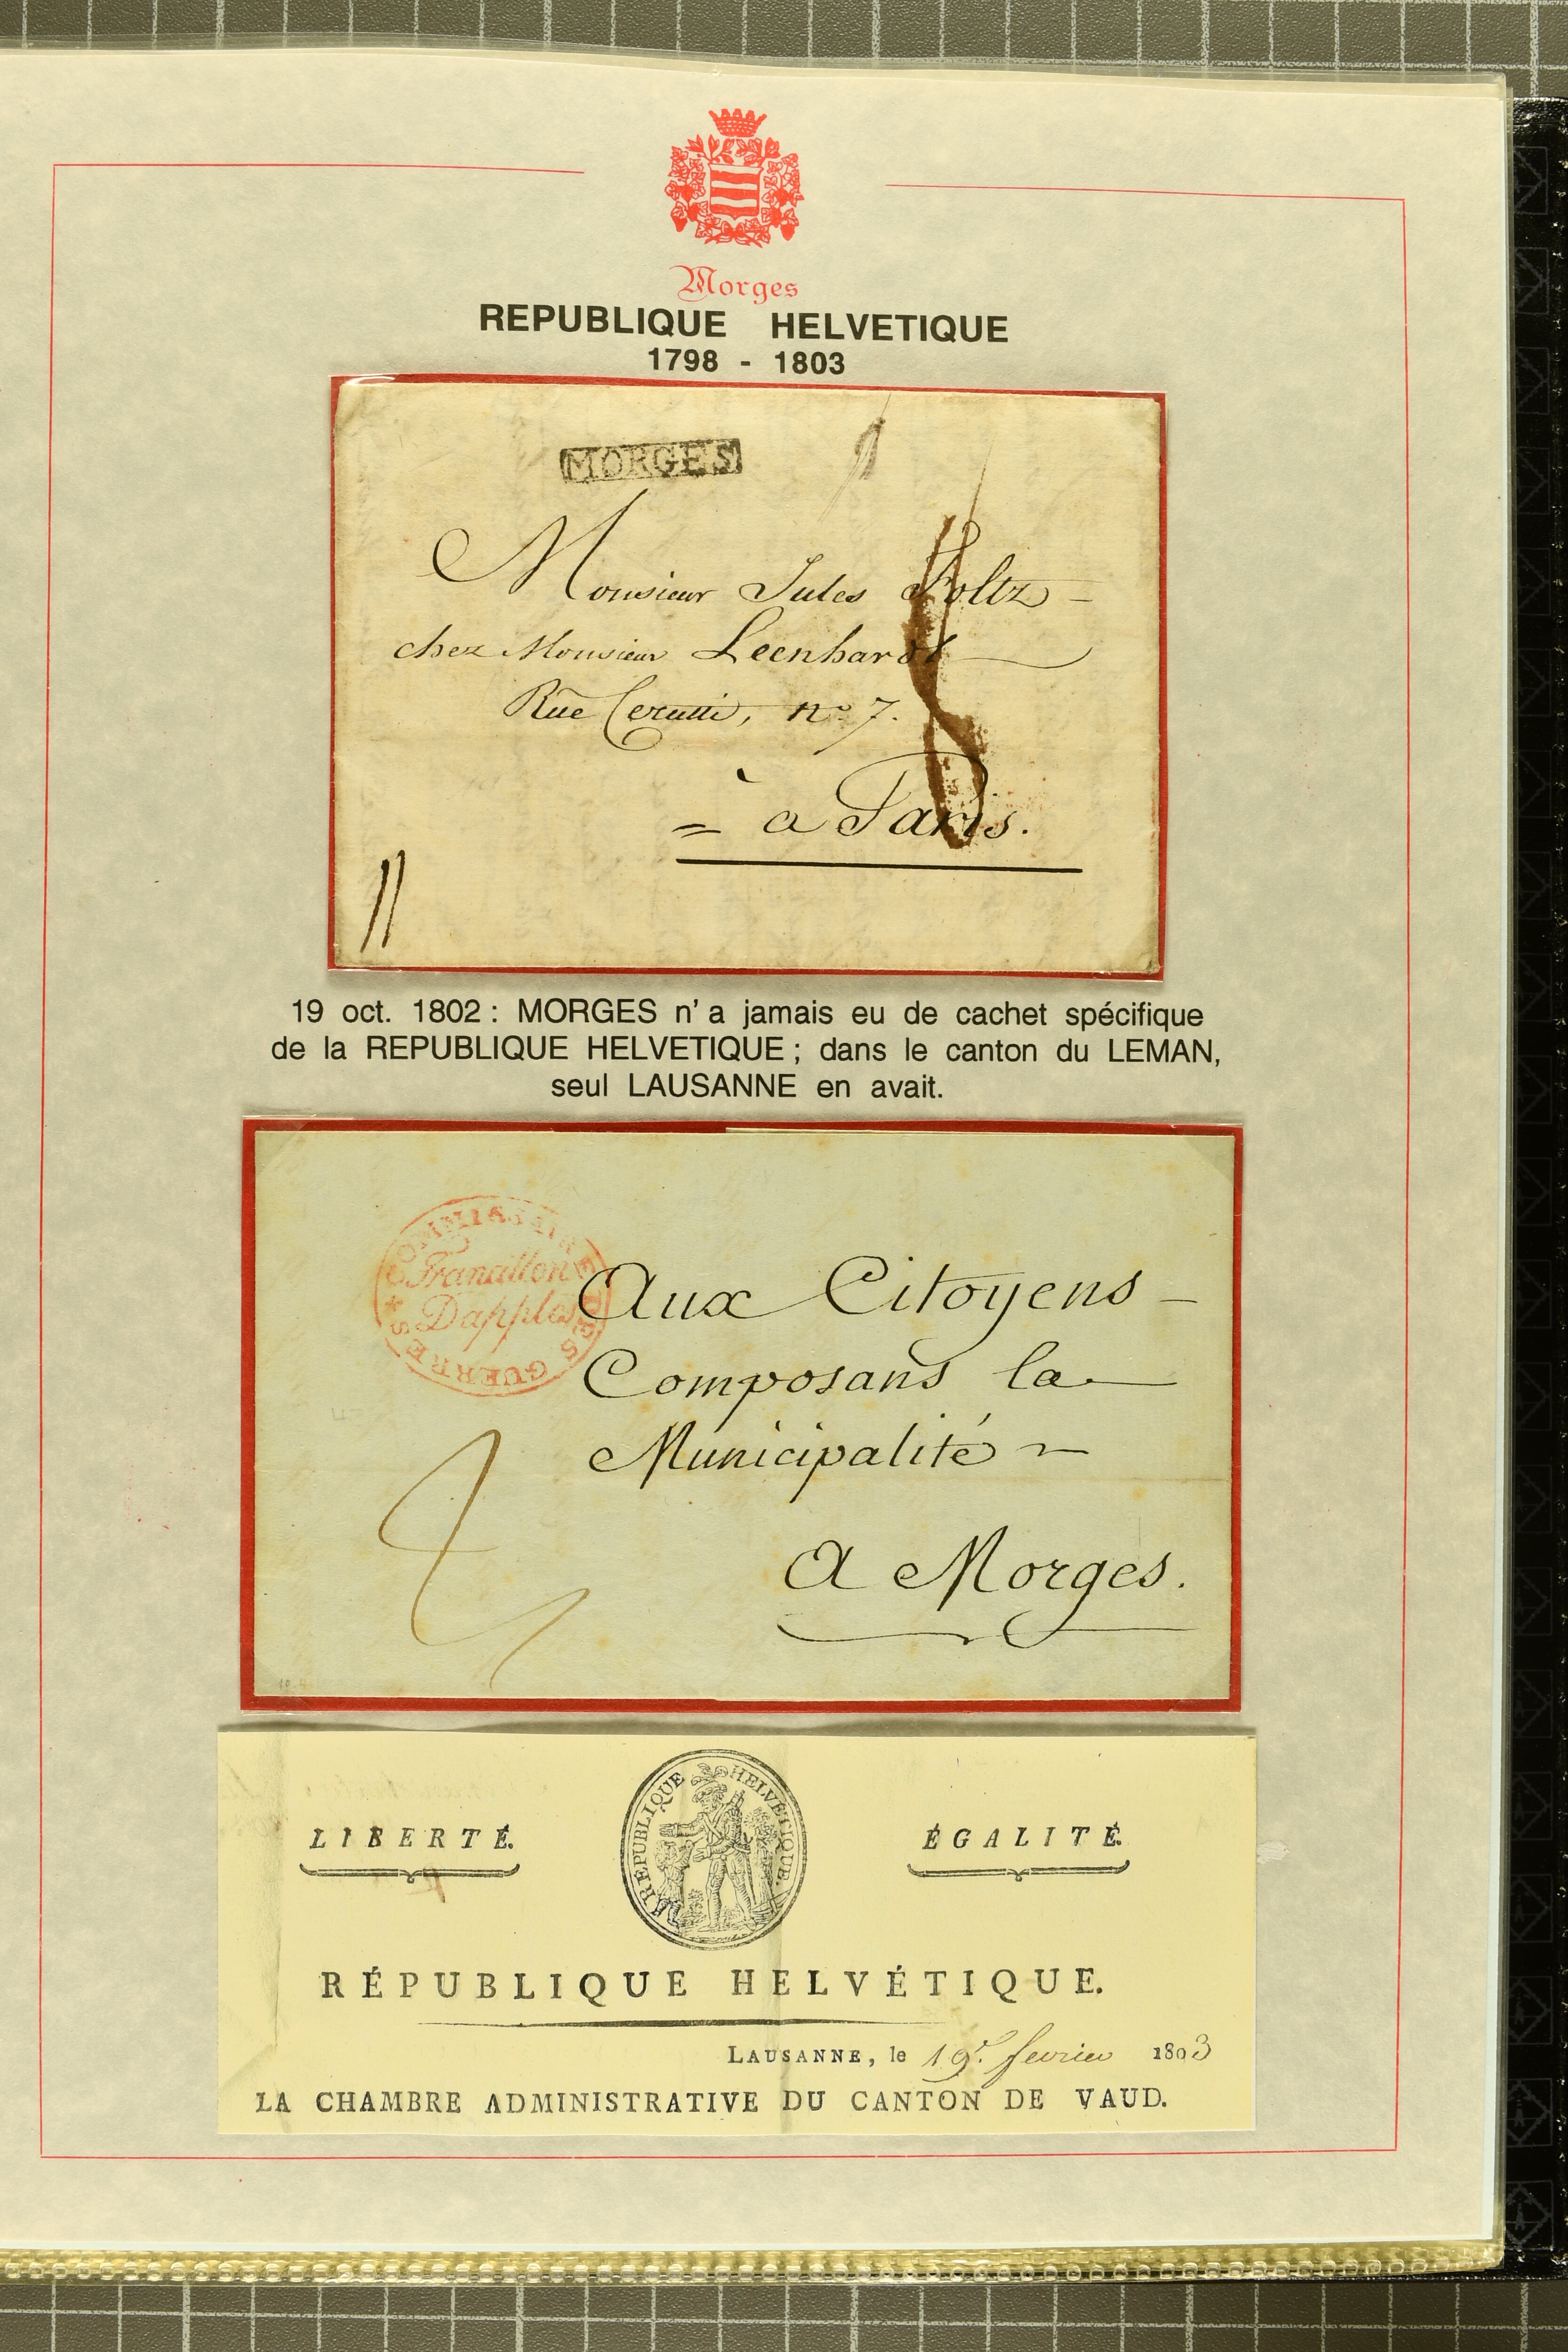 Morges
REPUBLIQUE HELVETIQUE
1798 - 1803
MORGES
Monsieur Jules Foltz
chez Monsieur Leenhardt
Rue Cerutti, nº 7.
= à Paris.
19 oct. 1802 : MORGES n'a jamais eu de cachet spécifique
de la REPUBLIQUE HELVETIQUE ; dans le canton du LEMAN,
seul LAUSANNE en avait.
COMMISSAIRE DES GUERRES *
Dapples
Aux Citoyens
Composans la
Municipalité
A Morges.
REPUBLIQUE HELVETIQUE.
LIBERTÉ.
ÉGALITÉ.
RÉPUBLIQUE HELVÉTIQUE.
LAUSANNE, le 19e. fevrier 1803
LA CHAMBRE ADMINISTRATIVE DU CANTON DE VAUD.